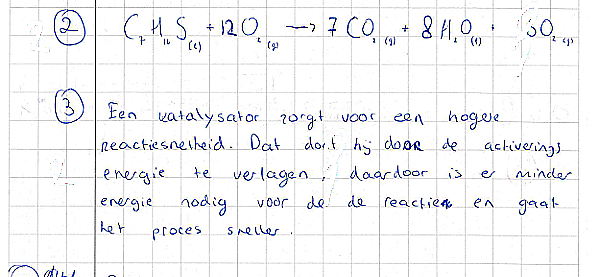 ② C₇H₁₆S(l) + 12O₂(g) → 7CO₂(g) + 8H₂O(l) + SO₂(g)
③ Een katalysator zorgt voor een hogere
reactiesnelheid. Dat doet hij door de activerings
energie te verlagen, daardoor is er minder
energie nodig voor de de reacties en gaat
het proces sneller.